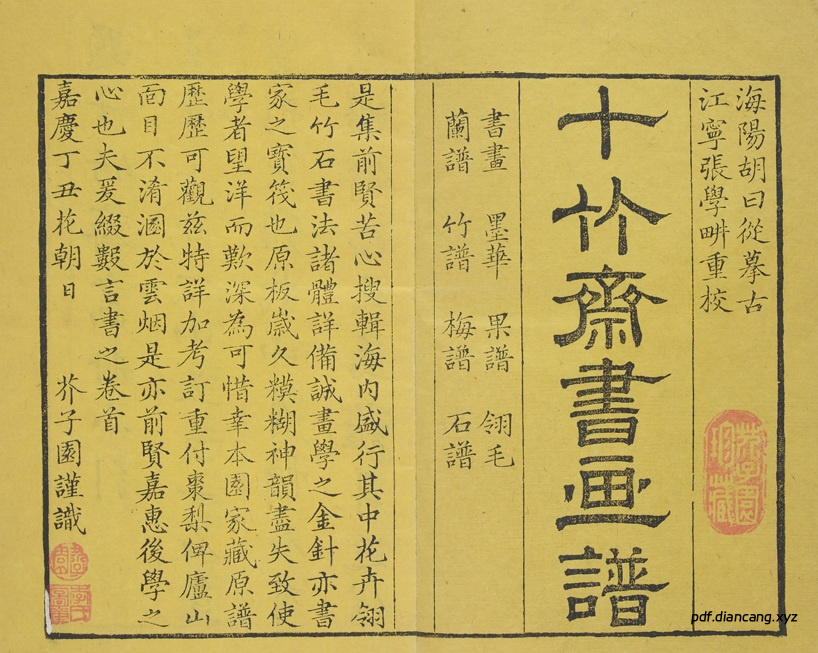 海陽胡曰從摹古
江寧張學畊重校
十竹齋書画譜
書畫 墨華 果譜 翎毛
蘭譜 竹譜 梅譜 石譜
是集前賢苦心搜輯海内盛行其中花卉翎
毛竹石書法諸體詳備誠畫學之金針亦書
家之寶筏也原板嵗久糢糊神韻盡失致使
學者望洋而歎深為可惜幸本園家藏原譜
歷歷可觀茲特詳加考訂重付棗梨俾廬山
面目不淆溷於雲烟是亦前賢嘉惠後學之
心也夫爰綴數言書之卷首
嘉慶丁丑花朝日 芥子園謹識
芥子園
珍藏
pdf.diancang.xyz